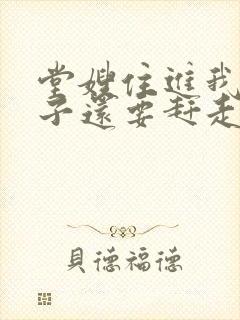 堂嫂住進我
子還要趕走
貝德福德